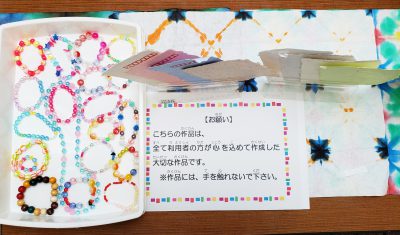 【お願い】
こちらの作品は、
全て利用者の方が心を込めて作成した
大切な作品です。
※作品には、手を触れないで下さい。